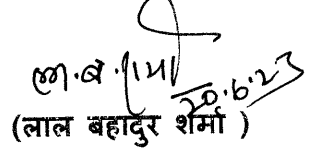 ला.ब.शर्मा
20.6.23
(लाल बहादुर शर्मा )